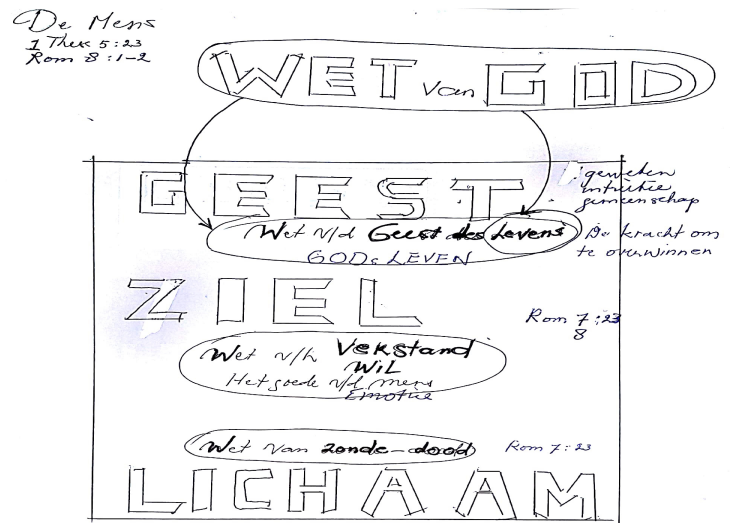 De Mens
1 Thes 5:23
Rom 8:1-2
WET van GOD
GEEST
geweten
intuitie
gemeenschap
Wet v/d Geest des Levens
De kracht om
te overwinnen
GODs LEVEN
ZIEL
Rom 7:23
8
Wet v/h Verstand
WiL
Het goede v/d mens
Emotie
Wet van zonde-dood
Rom 7:23
LICHAAM